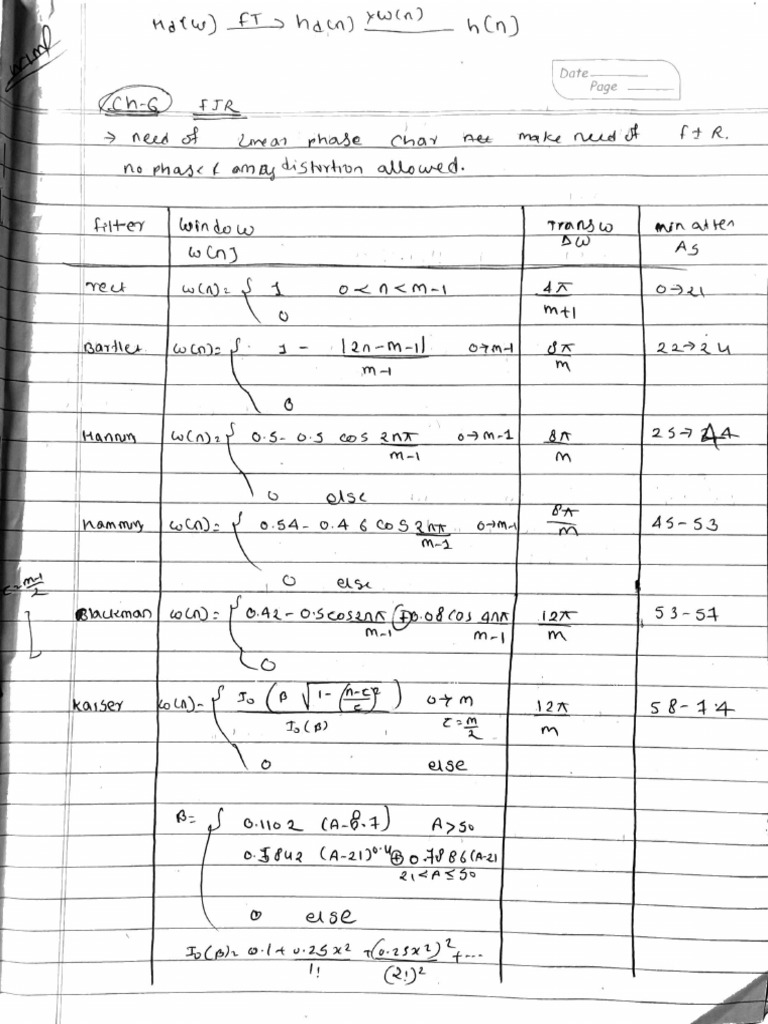 Hd(ω) FT→ hd(n) ×ω(n) h(n)
vvimp
Date
Page
Ch-6 FIR
→ need of linear phase char make need of FIR.
no phase & amp distortion allowed.
Filter Window Trans ω min atten
ω(n) Δω As
rect ω(n)= { 1 0<n<m-1 4π/m+1 0→21
0
Bartlet ω(n)= { 1 - |2n-m-1|/m-1 0→m-1 8π/m 22→24
0
Hannin ω(n)= { 0.5-0.5 cos 2nπ/m-1 0→m-1 8π/m 25→44
0 else
Hammin ω(n)= { 0.54-0.46 cos 2nπ/m-1 0→m-1 8π/m 45-53
0 else
τ=m-1/2
Blackman ω(n)= { 0.42-0.5cos2nπ/m-1 +0.08cos 4nπ/m-1 12π/m 53-57
0
Kaiser ω(n)- { Io (β √1-(n-τ/τ)²)/Io(β) 0→m τ=m/2 12π/m 58-74
0 else
β= { 0.1102 (A-8.7) A>50
0.5842 (A-21)^0.4 + 0.7886(A-21
21<A≤50
0 else
Io(β)= 0.1+0.25x²/1! +(0.25x²)²/(2!)² +...